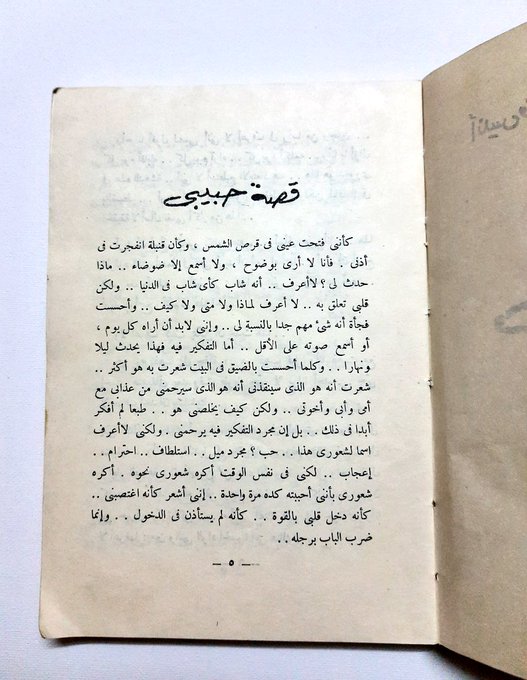 قصة حبيبى
كأننى فتحت عينى فى قرص الشمس ، وكأن قنبلة انفجرت فى
أذنى . فأنا لا أرى بوضوح ، ولا أسمع إلا ضوضاء .. ماذا
حدث لى ؟ لاأعرف .. أنه شاب كأى شاب فى الدنيا .. ولكن
قلبى تعلق به .. لا أعرف لماذا ولا متى ولا كيف .. وأحسست
فجأة أنه شئ مهم جدا بالنسبة لى .. وإننى لابد أن أراه كل يوم ،
أو أسمع صوته على الأقل .. أما التفكير فيه فهذا يحدث ليلا
ونهارا .. وكلما أحسست بالضيق فى البيت شعرت به هو أكثر ..
شعرت أنه هو الذى سينقذنى أنه هو الذى سيرحمنى من عذابى مع
أمى وأبى وأخوتى .. ولكن كيف يخلصنى هو .. طبعا لم أفكر
أبدا فى ذلك .. بل إن مجرد التفكير فيه يرحمنى . ولكنى لاأعرف
اسما لشعورى هذا .. حب ؟ مجرد ميل .. استلطاف .. احترام ..
إعجاب .. لكنى فى نفس الوقت أكره شعورى نحوه . أكره
شعورى بأننى أحببته كده مرة واحدة .. إننى أشعر كأنه اغتصبنى ..
كأنه دخل قلبى بالقوة .. كأنه لم يستأذن فى الدخول .. وإنما
ضرب الباب برجله ..
— ٥ —